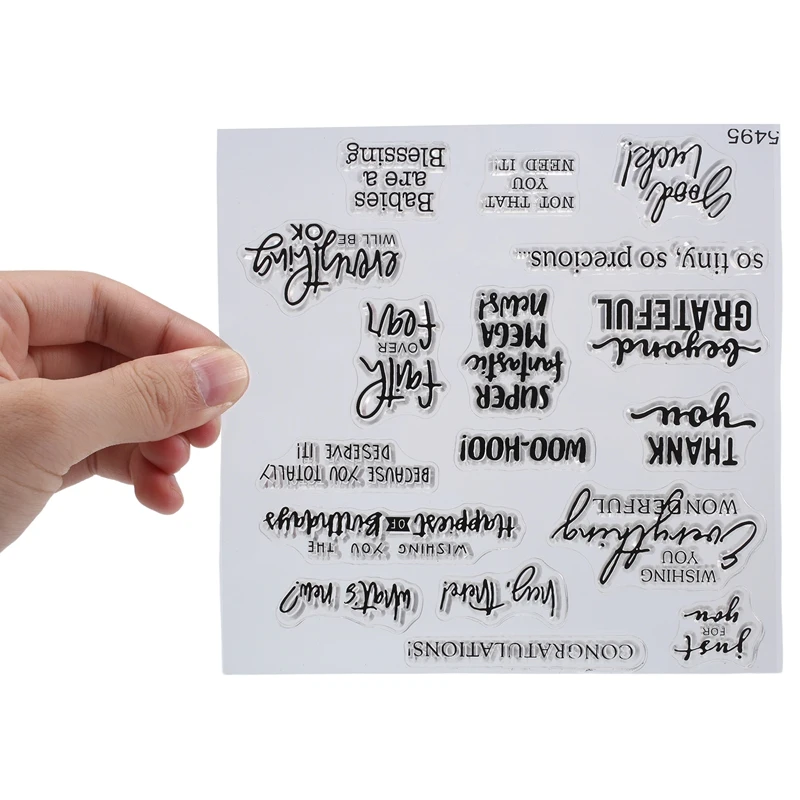 CONGRATULATIONS!
just
FOR
you
hey, there!
what's new?
WISHING
YOU
Everything
WONDERFUL
WISHING YOU THE
Happiest OF Birthdays
THANK
you
WOO-HOO!
BECAUSE YOU TOTALLY
DESERVE IT!
beyond
GRATEFUL
SUPER
fantastic
MEGA
news!
faith
OVER
fear
so tiny, so precious...
everything
WILL BE
OK
Good
Luck!
NOT THAT
YOU
NEED IT!
Babies
are a
Blessing
5495